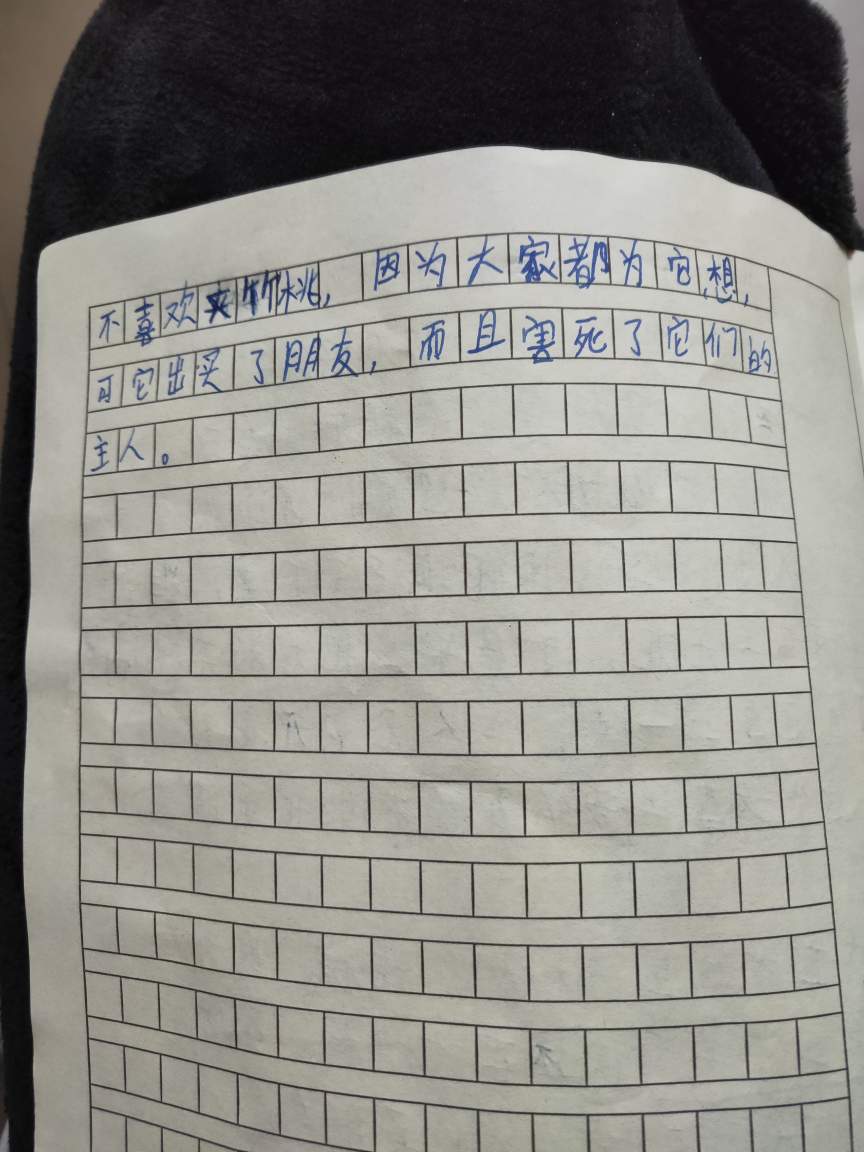 不喜欢夹竹桃,因为大家都为它想,
可它出买了朋友,而且害死了它们的
主人。